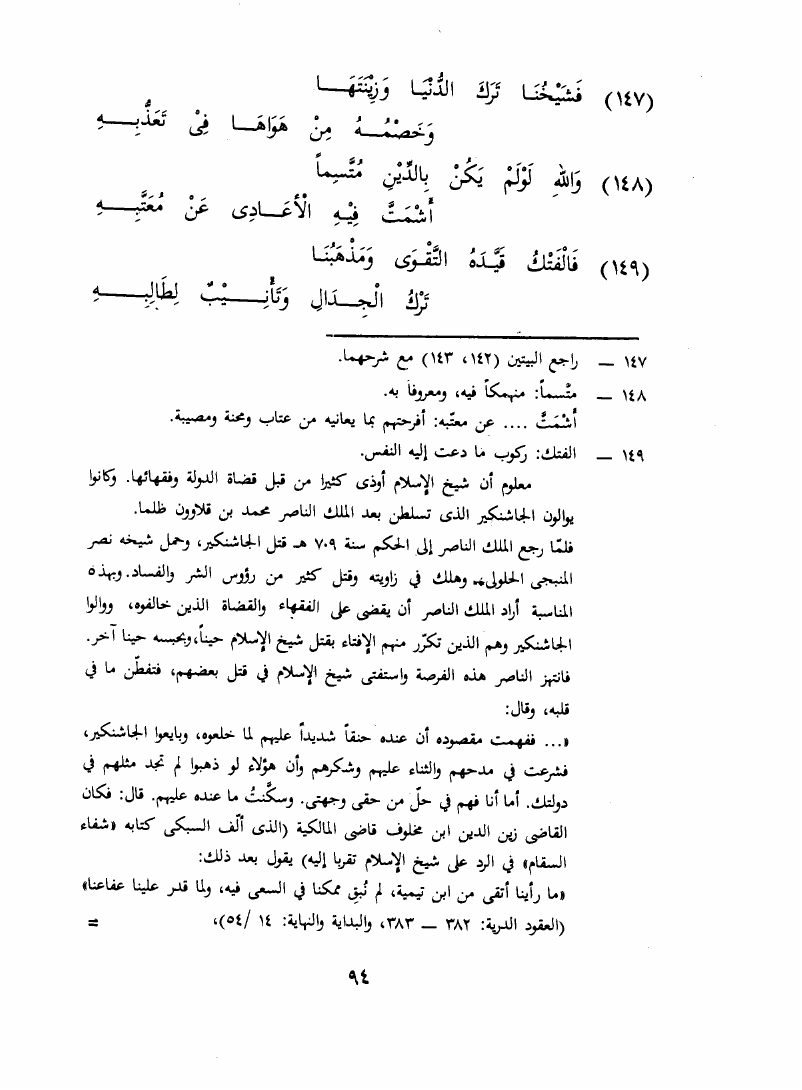 (١٤٧) فَشَيْخُنَـا تَرَكَ الدُّنْيَـا وَزِيْنَتَهَـا
وَخَصْمُـهُ مِنْ هَوَاهَـا فِىْ تَعَذُّبِـهِ
(١٤٨) وَاللهِ لَوْلَمْ يَكُنْ بِالدِّيْنِ مُتَّسِماً
أَشْمَتَّ فِيْهِ الْأَعَـادِى عَنْ مُعَتَّبِـهِ
(١٤٩) فَالْفَتْكُ قَيَّـدَهُ التَّقْوَى وَمَذْهَبُنَـا
تَرْكُ الْجِـدَالِ وَتَأْنِـيْبٌ لِطَالِبِـهِ
١٤٧ ــ راجع البيتين (١٤٢، ١٤٣) مع شرحهما.
١٤٨ ــ متّسماً: منهمكاً فيه، ومعروفاً به.
أَشْمَتَّ .... عن معتّبه: أفرحتهم بما يعانيه من عتاب ومحنة ومصيبة.
١٤٩ ــ الفتك: ركوب ما دعت إليه النفس.
معلوم أن شيخ الإسلام أوذى كثيرا من قبل قضاة الدولة وفقهائها. وكانوا
يوالون الجاشنكير الذى تسلطن بعد الملك الناصر محمد بن قلاوون ظلما.
فلمّا رجع الملك الناصر إلى الحكم سنة ٧٠٩ هـ قتل الجاشنكير، وحمل شيخه نصر
المنبجى الحلولى، وهلك في زاويته وقتل كثير من رؤوس الشر والفساد. وبهذه
المناسبة أراد الملك الناصر أن يقضى على الفقهاء والقضاة الذين خالفوه، ووالوا
الجاشنكير وهم الذين تكرّر منهم الإفتاء بقتل شيخ الإسلام حيناً، وبحبسه حينا آخر.
فانتهز الناصر هذه الفرصة واستفتى شيخ الإسلام في قتل بعضهم، فتفطّن ما في
قلبه، وقال:
«... ففهمت مقصوده أن عنده حنقاً شديداً عليهم لما خلعوه، وبايعوا الجاشنكير،
فشرعت في مدحهم والثناء عليهم وشكرهم وأن هؤلاء لو ذهبوا لم تجد مثلهم في
دولتك. أما أنا فهم في حلّ من حقى وجهتى. وسكَّنتُ ما عنده عليهم. قال: فكان
القاضى زين الدين ابن مخلوف قاضى المالكية (الذى ألّف السبكى كتابه «شفاء
السقام» في الرد على شيخ الإسلام تقربا إليه) يقول بعد ذلك:
«ما رأينا أتقى من ابن تيمية، لم نُبق ممكنا في السعى فيه، ولما قدر علينا عفاعنا»
(العقود الدرية: ٣٨٢ ــ ٣٨٣، والبداية والنهاية: ١٤ /٥٤)، =
٩٤